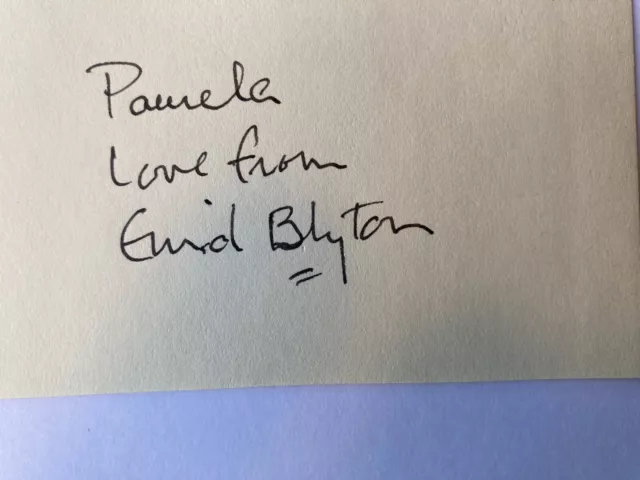 Pamela
Love from
Enid Blyton